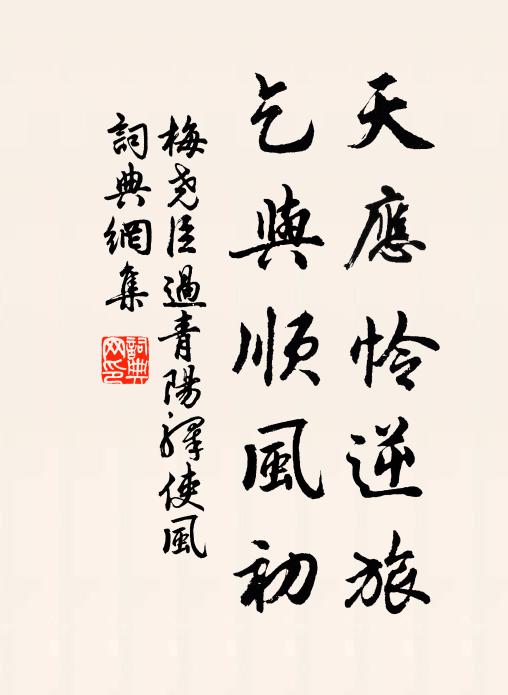 天應怜逆旅
乞與順風初
梅堯臣過青陽驛使風
詞典網集
詞典
网印